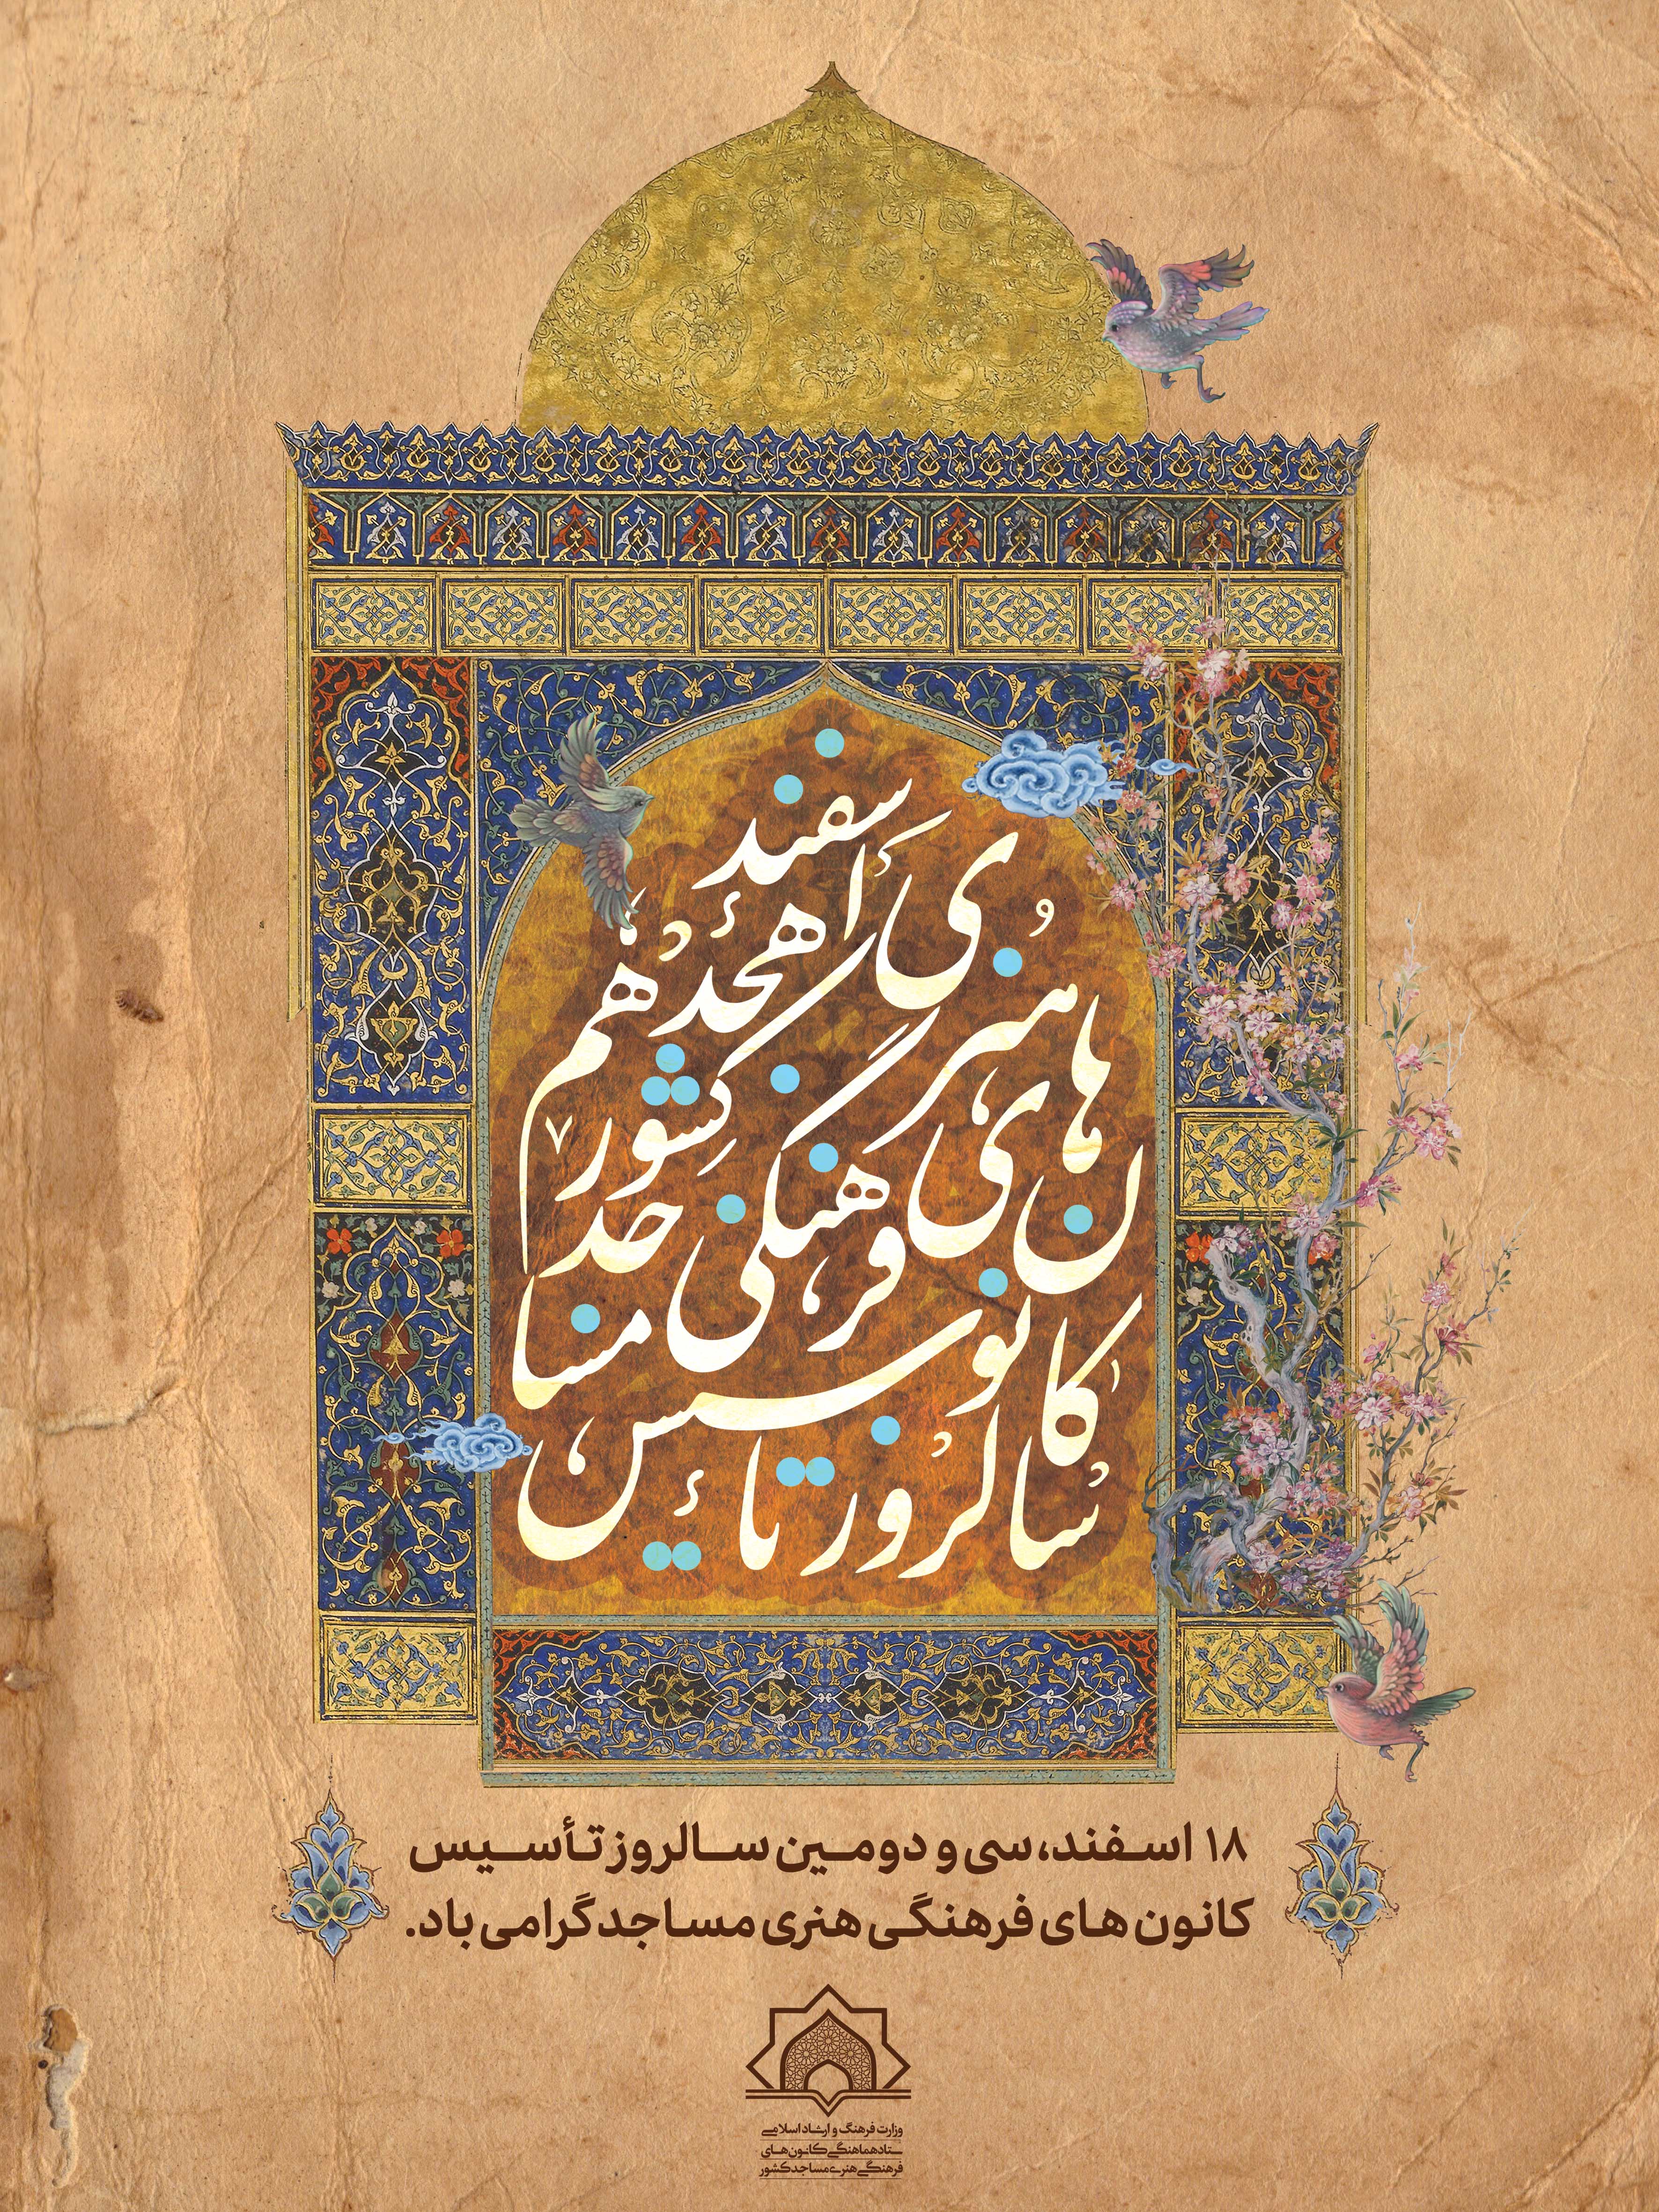 سالروز تأسیس
کانون‌های فرهنگی هنری
مساجد کشور
هجدهم اسفند
۱۸ اسفند، سی و دومین سالروز تأسیس
کانون های فرهنگی هنری مساجد گرامی باد.
وزارت فرهنگ و ارشاد اسلامی
ستاد هماهنگی کانون‌های
فرهنگی هنری مساجد کشور